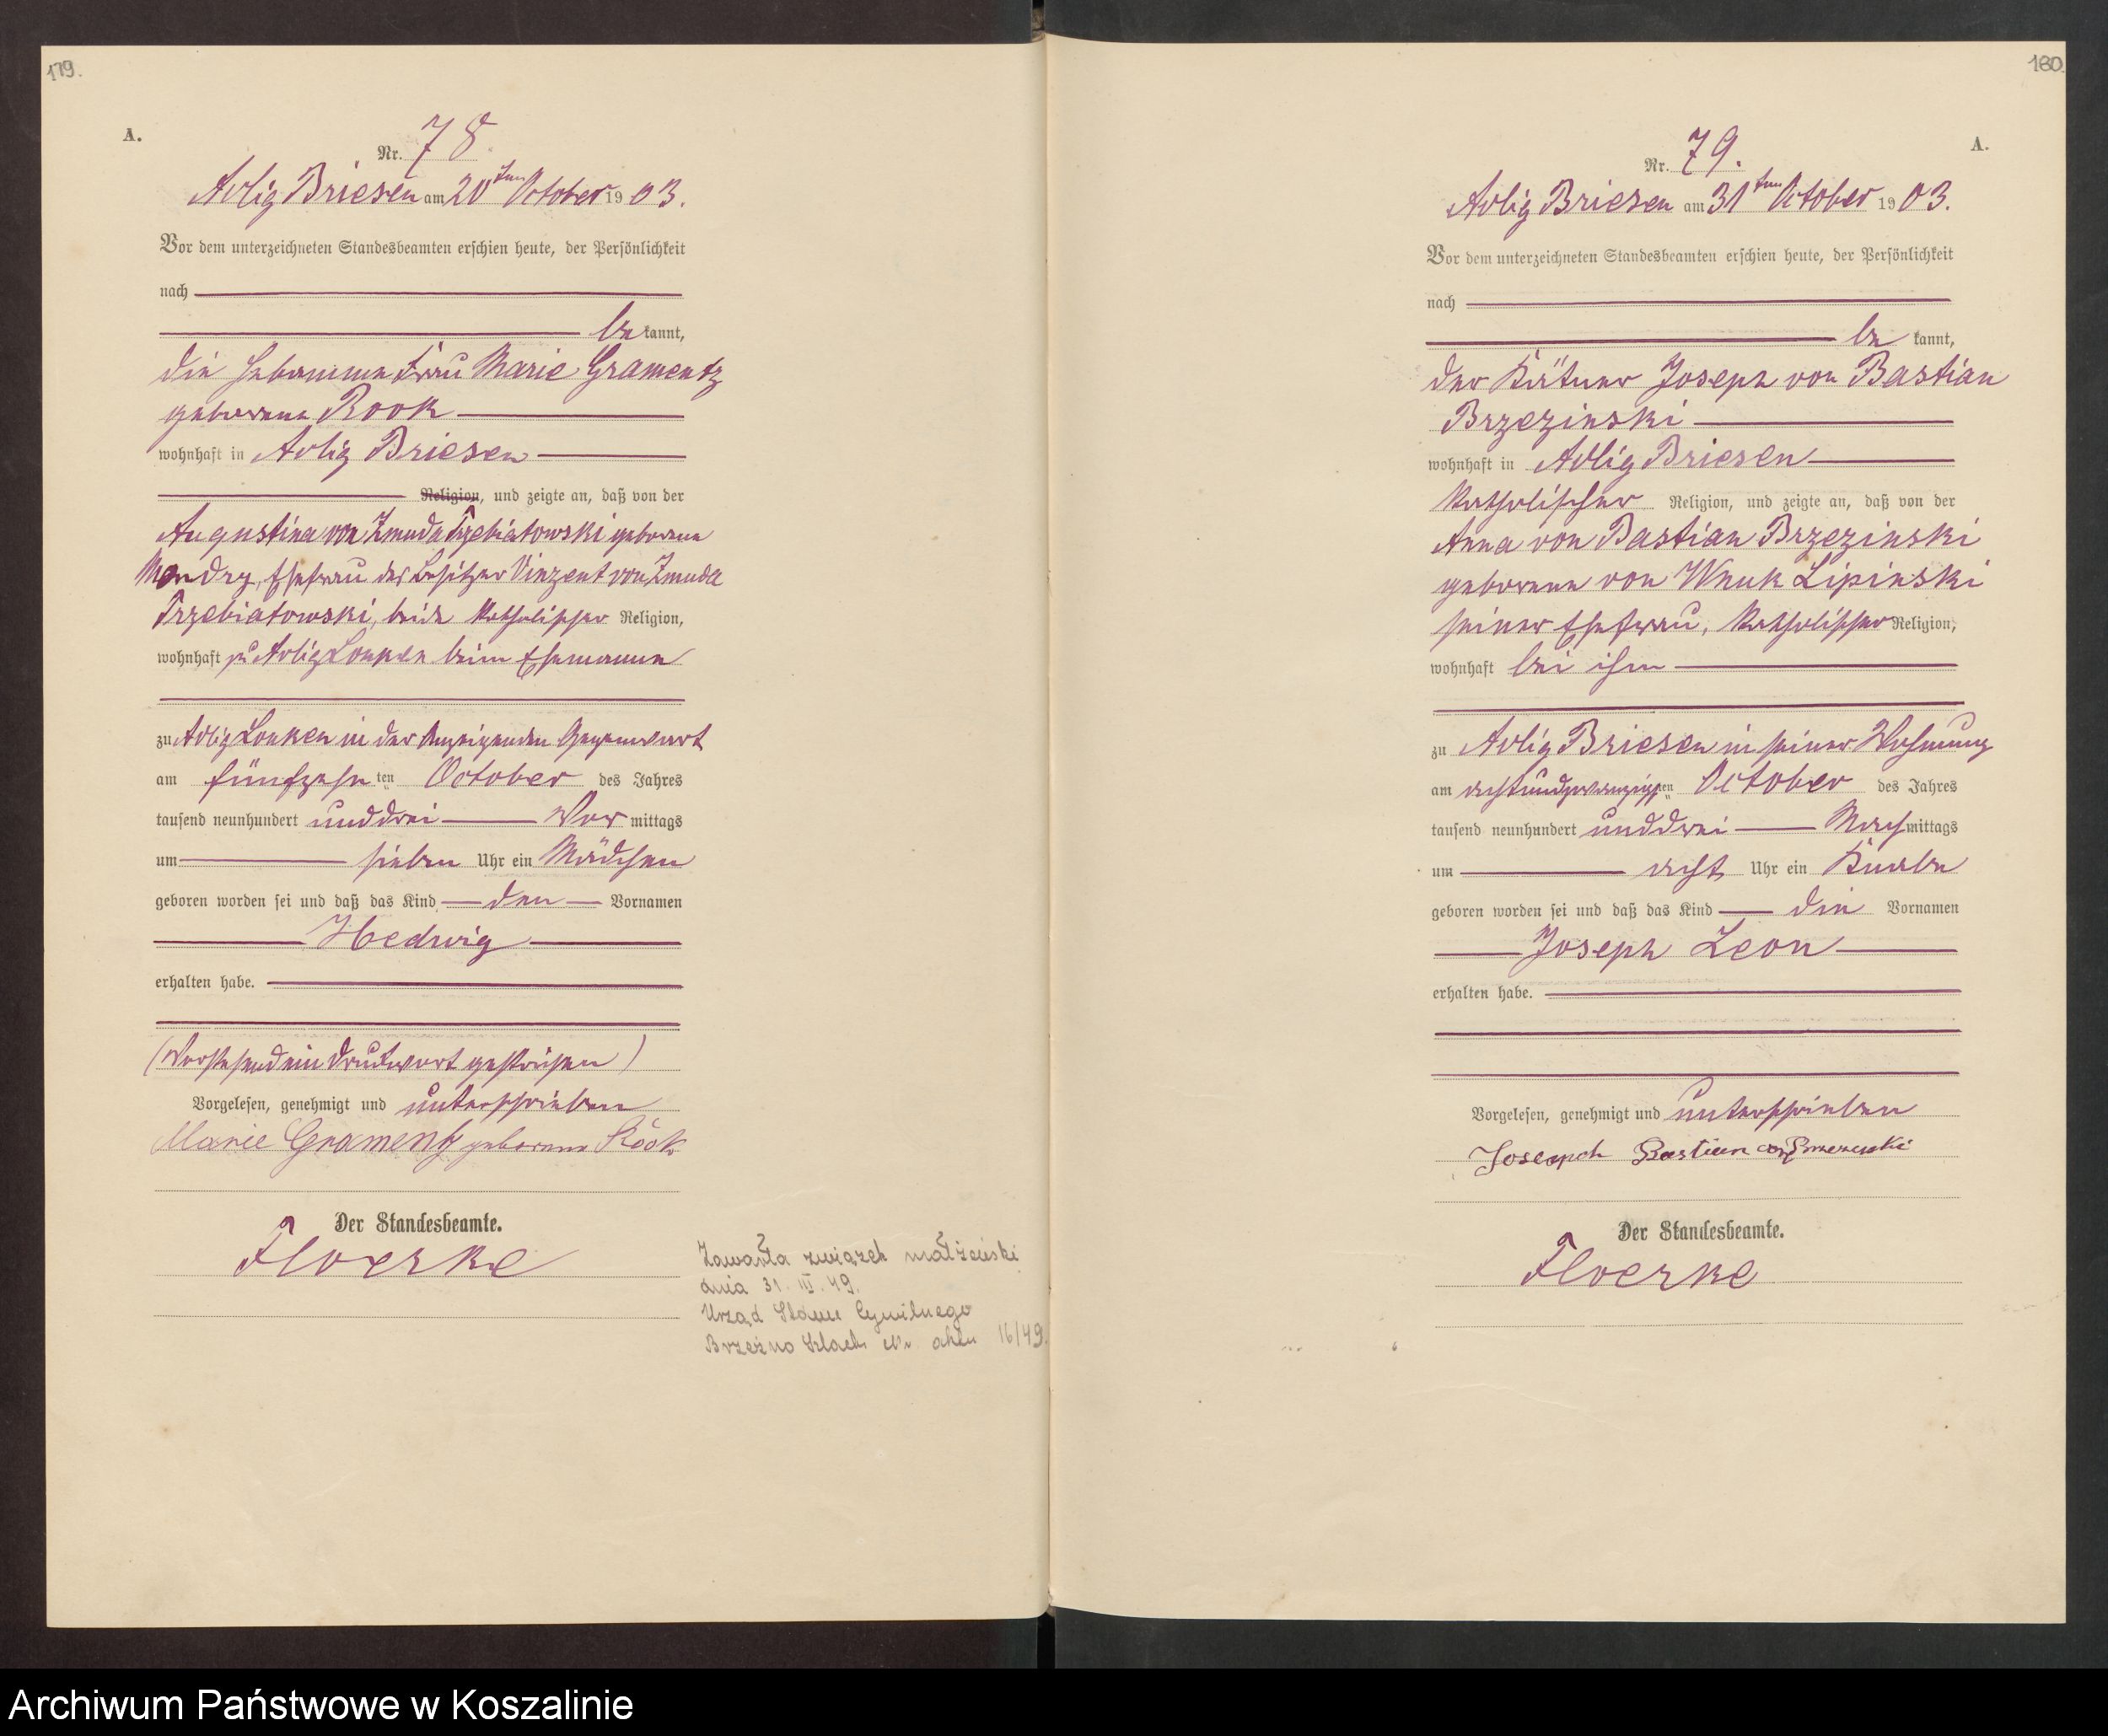 179.
A.
Nr. 78
Adlig Briesen am 20ten October 1903.
Vor dem unterzeichneten Standesbeamten erschien heute, der Persönlichkeit
nach
be kannt,
die Hebamme Frau Marie Gramentz
geborene Rook
wohnhaft in Adlig Briesen
Religion, und zeigte an, daß von der
Augustina von Zmuda Trzebiatowski geborene
Mondry, Ehefrau des Besitzer Vinzent von Zmuda
Trzebiatowski, beide katholischer Religion,
wohnhaft zu Adlig Lonken beim Ehemanne
zu Adlig Lonken in der Anzeigenden Gegenwart
am fünfzehn ten October des Jahres
tausend neunhundert unddrei Vor mittags
um sieben Uhr ein Mädchen
geboren worden sei und daß das Kind den Vornamen
Hedwig
erhalten habe.
(Vorstehend ein Druckwort gestrichen)
Vorgelesen, genehmigt und unterschrieben
Marie Gramentz geborene Röök
Der Standesbeamte.
Floerke
Zawarła związek małżeński
dnia 31. III. 49.
Urząd Stanu Cywilnego
Brzeźno Szlach. Nr. aktu 16/49.
180.
A.
Nr. 79.
Adlig Briesen am 31ten October 1903.
Vor dem unterzeichneten Standesbeamten erschien heute, der Persönlichkeit
nach
be kannt,
der Kätner Joseph von Bastian
Brzezinski
wohnhaft in Adlig Briesen
katholischer Religion, und zeigte an, daß von der
Anna von Bastian Brzezinski
geborene von Wnuk Lipinski
seiner Ehefrau, katholischer Religion,
wohnhaft bei ihm
zu Adlig Briesen in seiner Wohnung
am achtundzwanzigsten October des Jahres
tausend neunhundert unddrei Nach mittags
um acht Uhr ein Knabe
geboren worden sei und daß das Kind die Vornamen
Joseph Leon
erhalten habe.
Vorgelesen, genehmigt und unterschrieben
Bastian
Der Standesbeamte.
Floerke
Archiwum Państwowe w Koszalinie